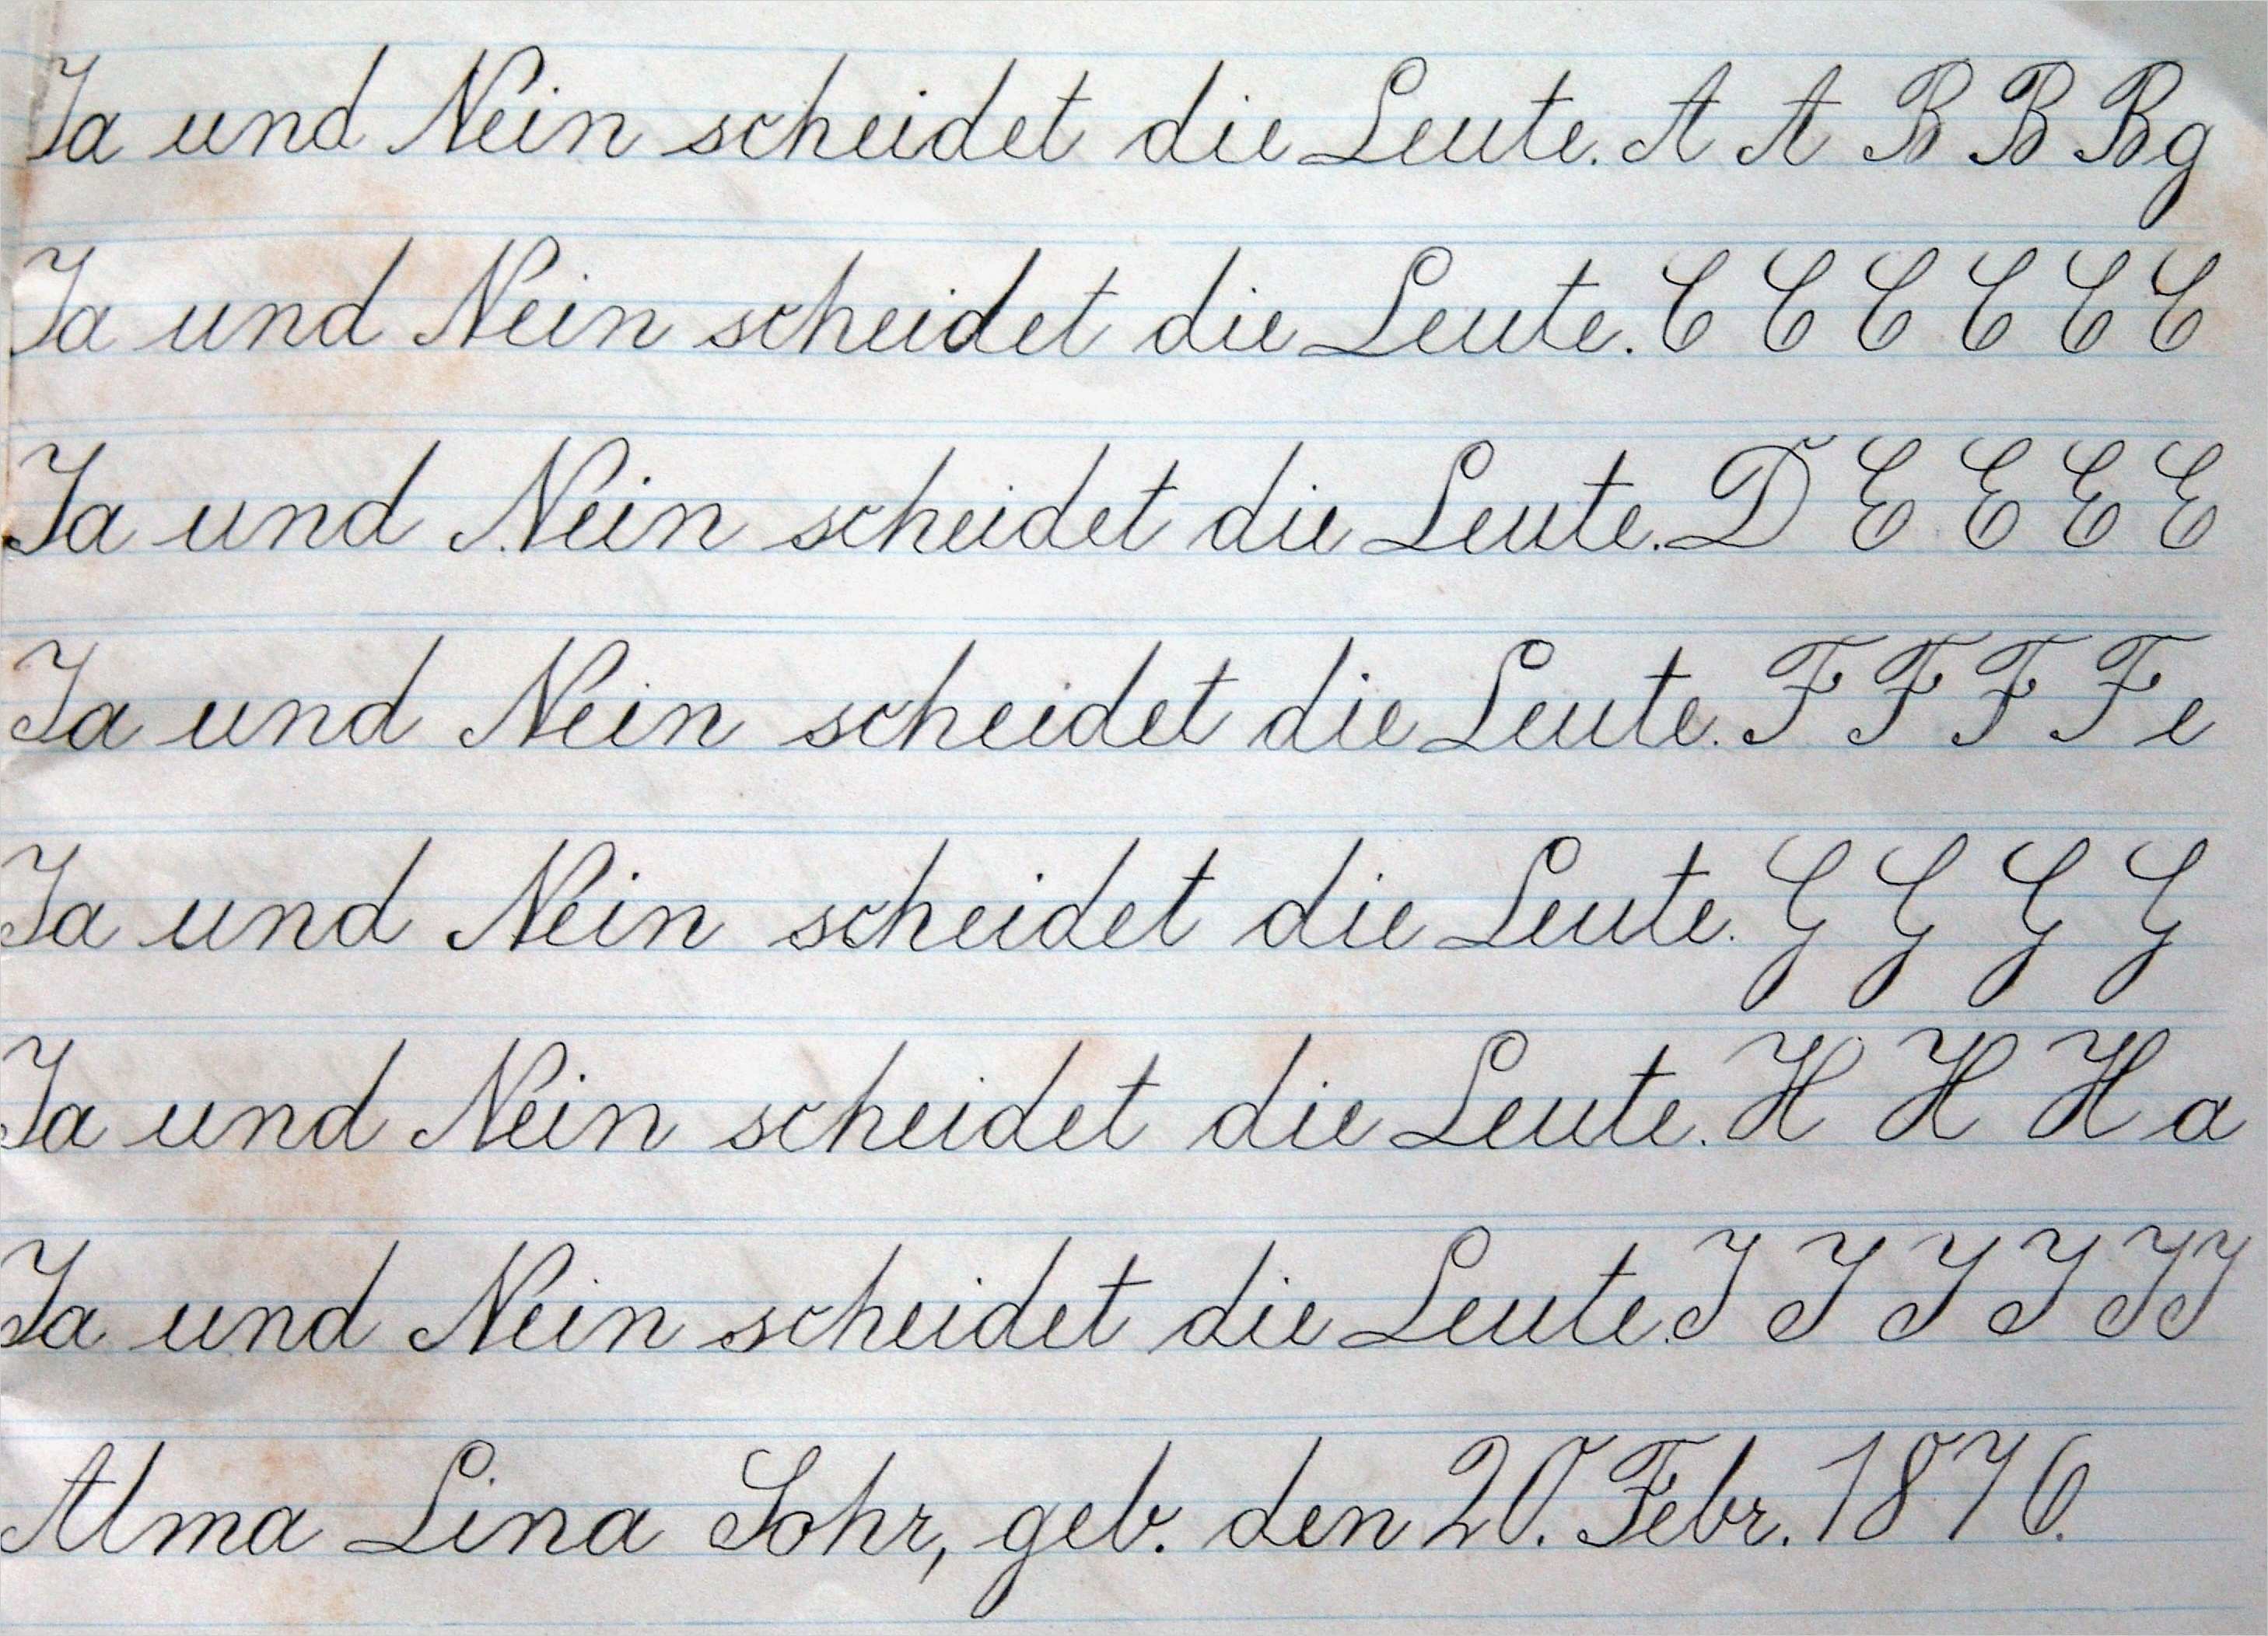 Ja und Nein scheidet die Leute. A A B B B g
Ja und Nein scheidet die Leute. C C C C C C
Ja und Nein scheidet die Leute. D E E E E
Ja und Nein scheidet die Leute. F F F F e
Ja und Nein scheidet die Leute. G G G G
Ja und Nein scheidet die Leute. H H H a
Ja und Nein scheidet die Leute. J J J J J J
Alma Lina Sohr, geb. den 20. Febr. 1876.